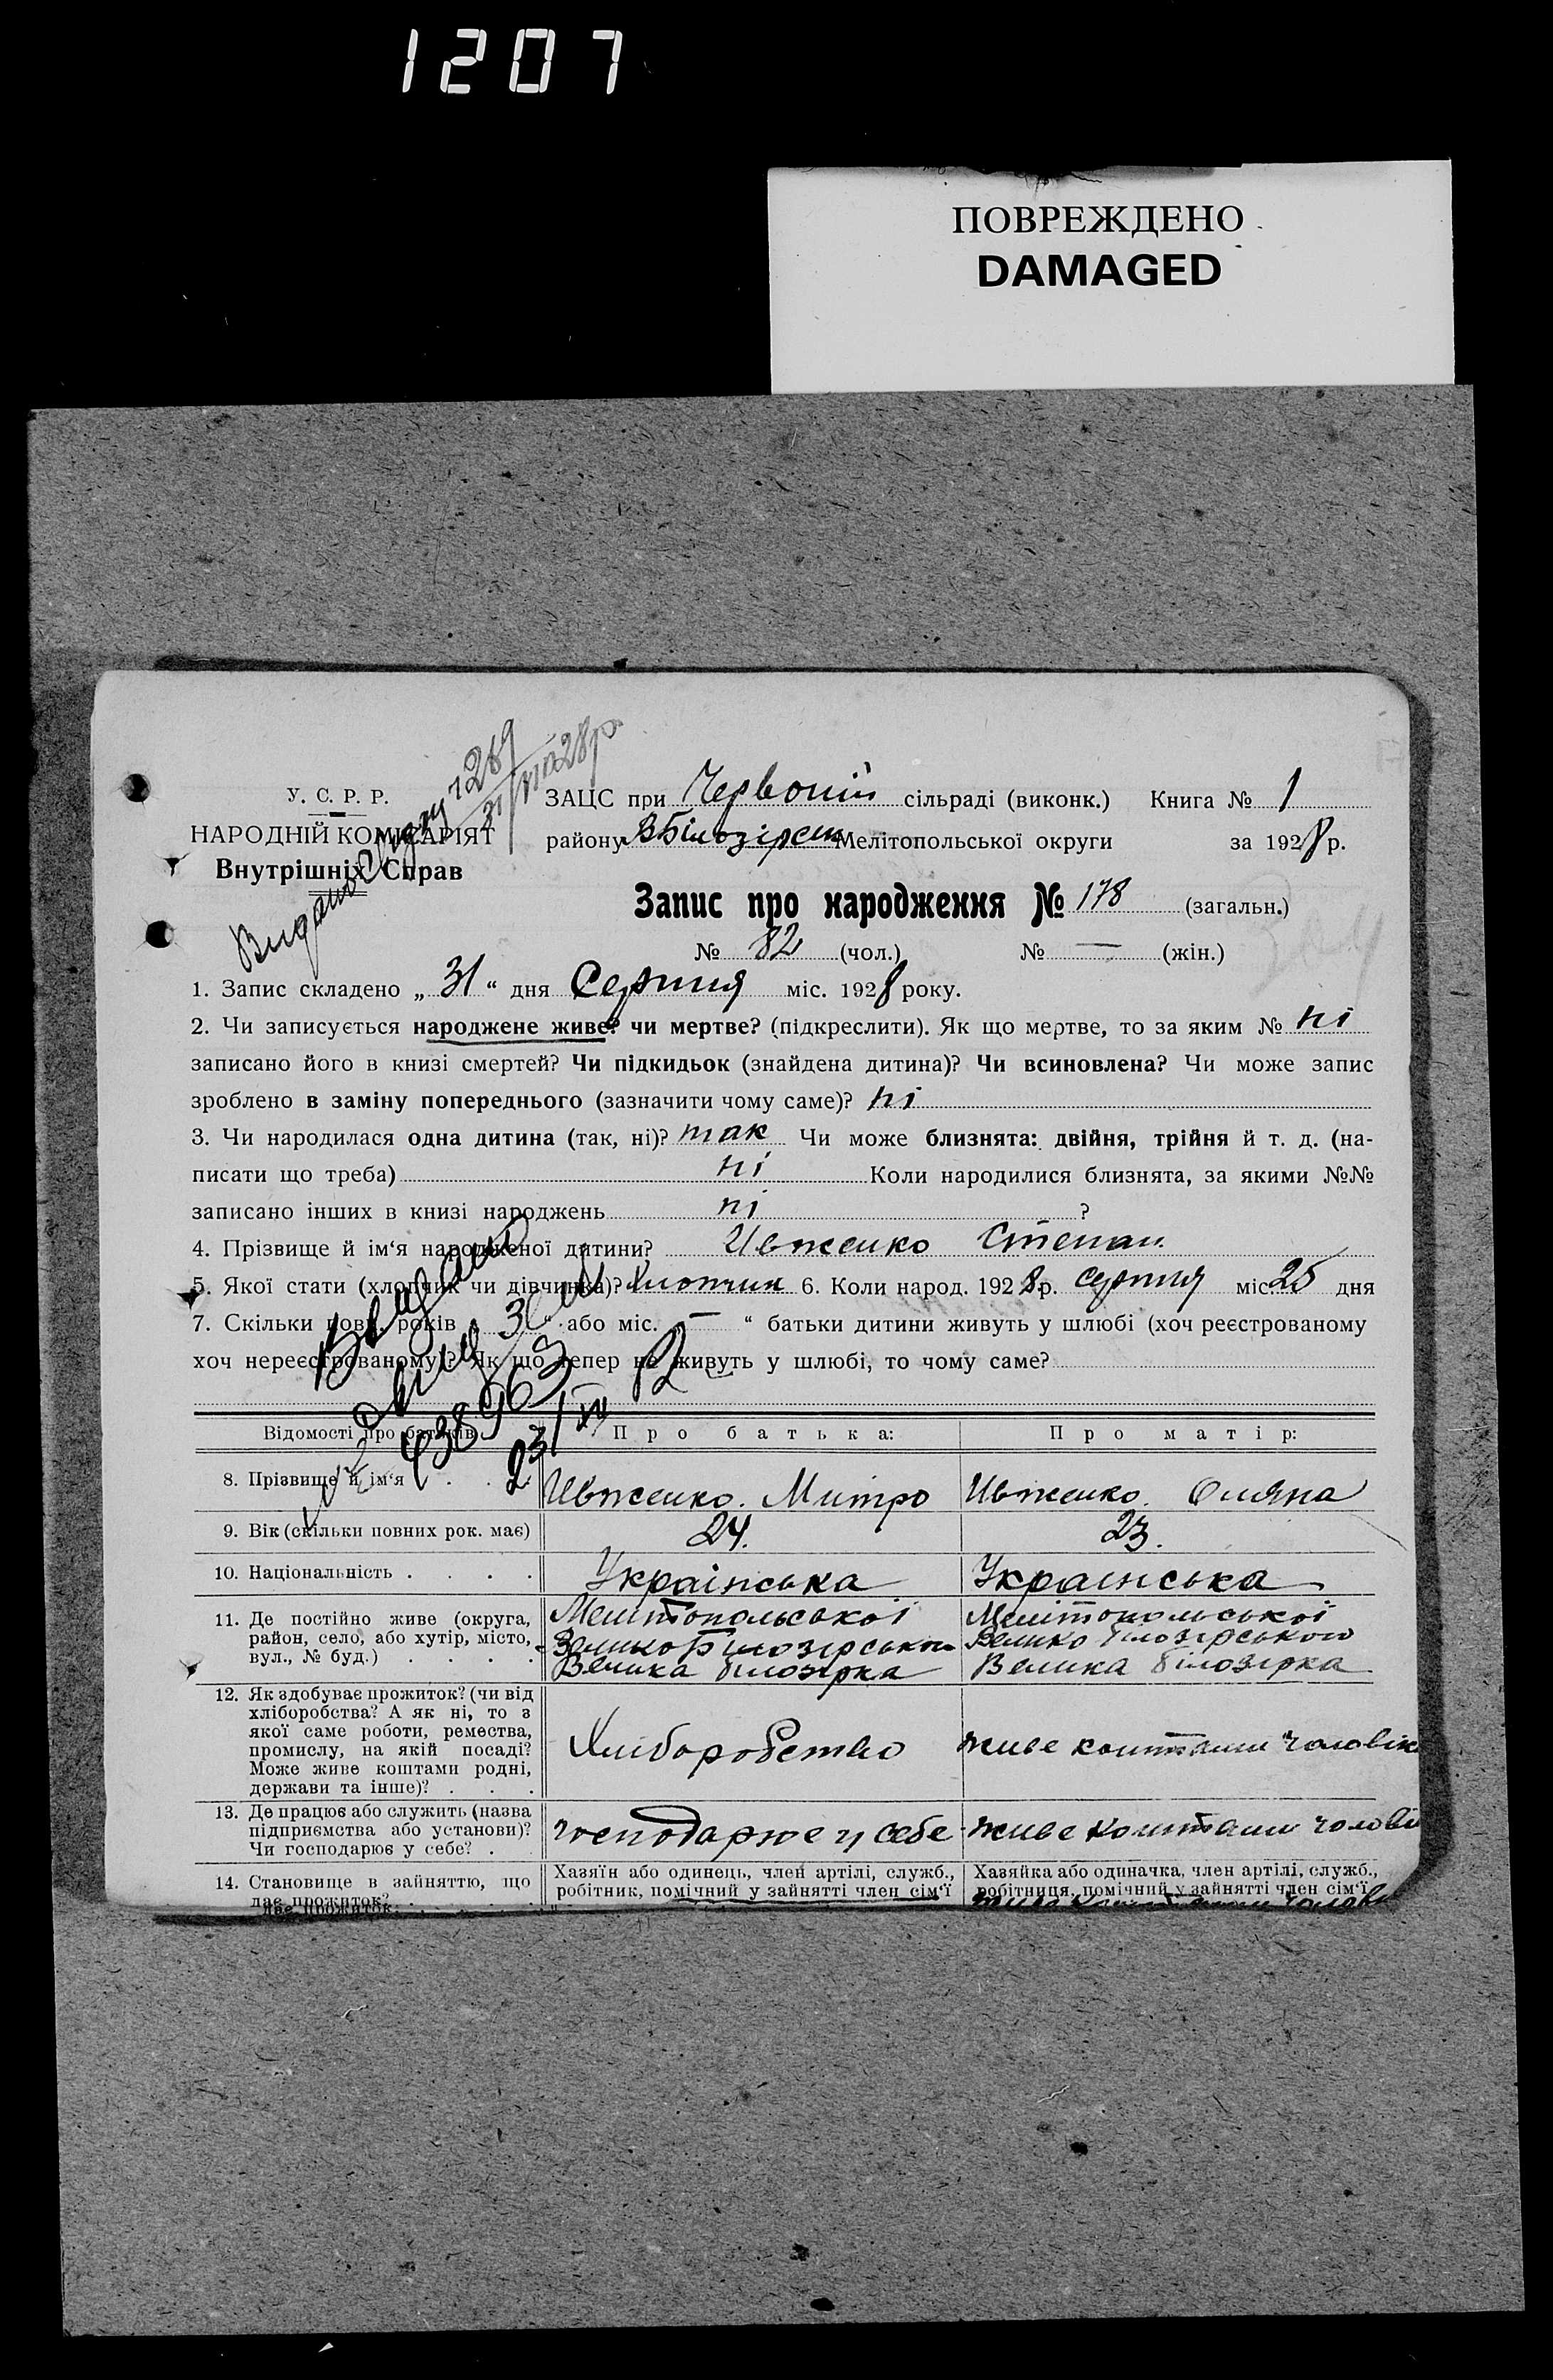 1207
ПОВРЕЖДЕНО
DAMAGED
У. С. Р. Р.
НАРОДНІЙ КОМІСАРІЯТ
Внутрішніх Справ
Видано
ЗАЦС при Червоній сільраді (виконк.) Книга № 1
району ВБілозірськ Мелітопольської округи за 1928 р.
Запис про народження № 178 (загальн.)
№ 82 (чол.) № — (жін.)
1. Запис складено „ 31 “ дня Серпня міс. 1928 року.
2. Чи записується народжене живе? чи мертве? (підкреслити). Як що мертве, то за яким № ні
записано його в книзі смертей? Чи підкидьок (знайдена дитина)? Чи всиновлена? Чи може запис
зроблено в заміну попереднього (зазначити чому саме)? ні
3. Чи народилася одна дитина (так, ні)? так Чи може близнята: двійня, трійня й т. д. (на-
писати що треба) ні Коли народилися близнята, за якими №№
записано інших в книзі народжень ні ?
4. Прізвище й ім‘я народженої дитини? Ивженко Степан.
5. Якої стати (хлопчик чи дівчинка)? Хлопчик 6. Коли народ. 1928 р. серпня міс. 25 дня
7. Скільки повн. років „ 3 “ або міс. „ — “ батьки дитини живуть у шлюбі (хоч реєстрованому
хоч нереєстрованому)? Як що тепер не живуть у шлюбі, то чому саме?
438963
23/IV
Відомості про батьків Про батька: Про матір:
8. Прізвище й ім‘я Ивженко. Митро Ивженко. Оляна
9. Вік (скільки повних рок. має) 24. 23.
10. Національність Українська Українська
11. Де постійно живе (округа, район, село, або хутір, місто, вул., № буд.)
Мелітопольської Мелітопольської
Велико Білозірського Велико Білозірського
Велика Білозірка Велика Білозірка
12. Як здобуває прожиток? (чи від
хліборобства? А як ні, то з
якої саме роботи, ремества,
промислу, на якій посаді?
Може живе коштами родні,
держави та інше)?
Хліборобство живе коштами чоловік
13. Де працює або служить (назва
підприємства або установи)?
Чи господарює у себе?
господарює у себе живе коштами чолові
14. Становище в зайняттю, що
дає прожиток?
Хазяїн або одинець, член артілі, служб.,
робітник, помічний у зайнятті член сім‘ї
Хазяйка або одиначка, член артілі, служб.,
робітниця, помічний у зайнятті член сім‘ї
живе коштами чолові